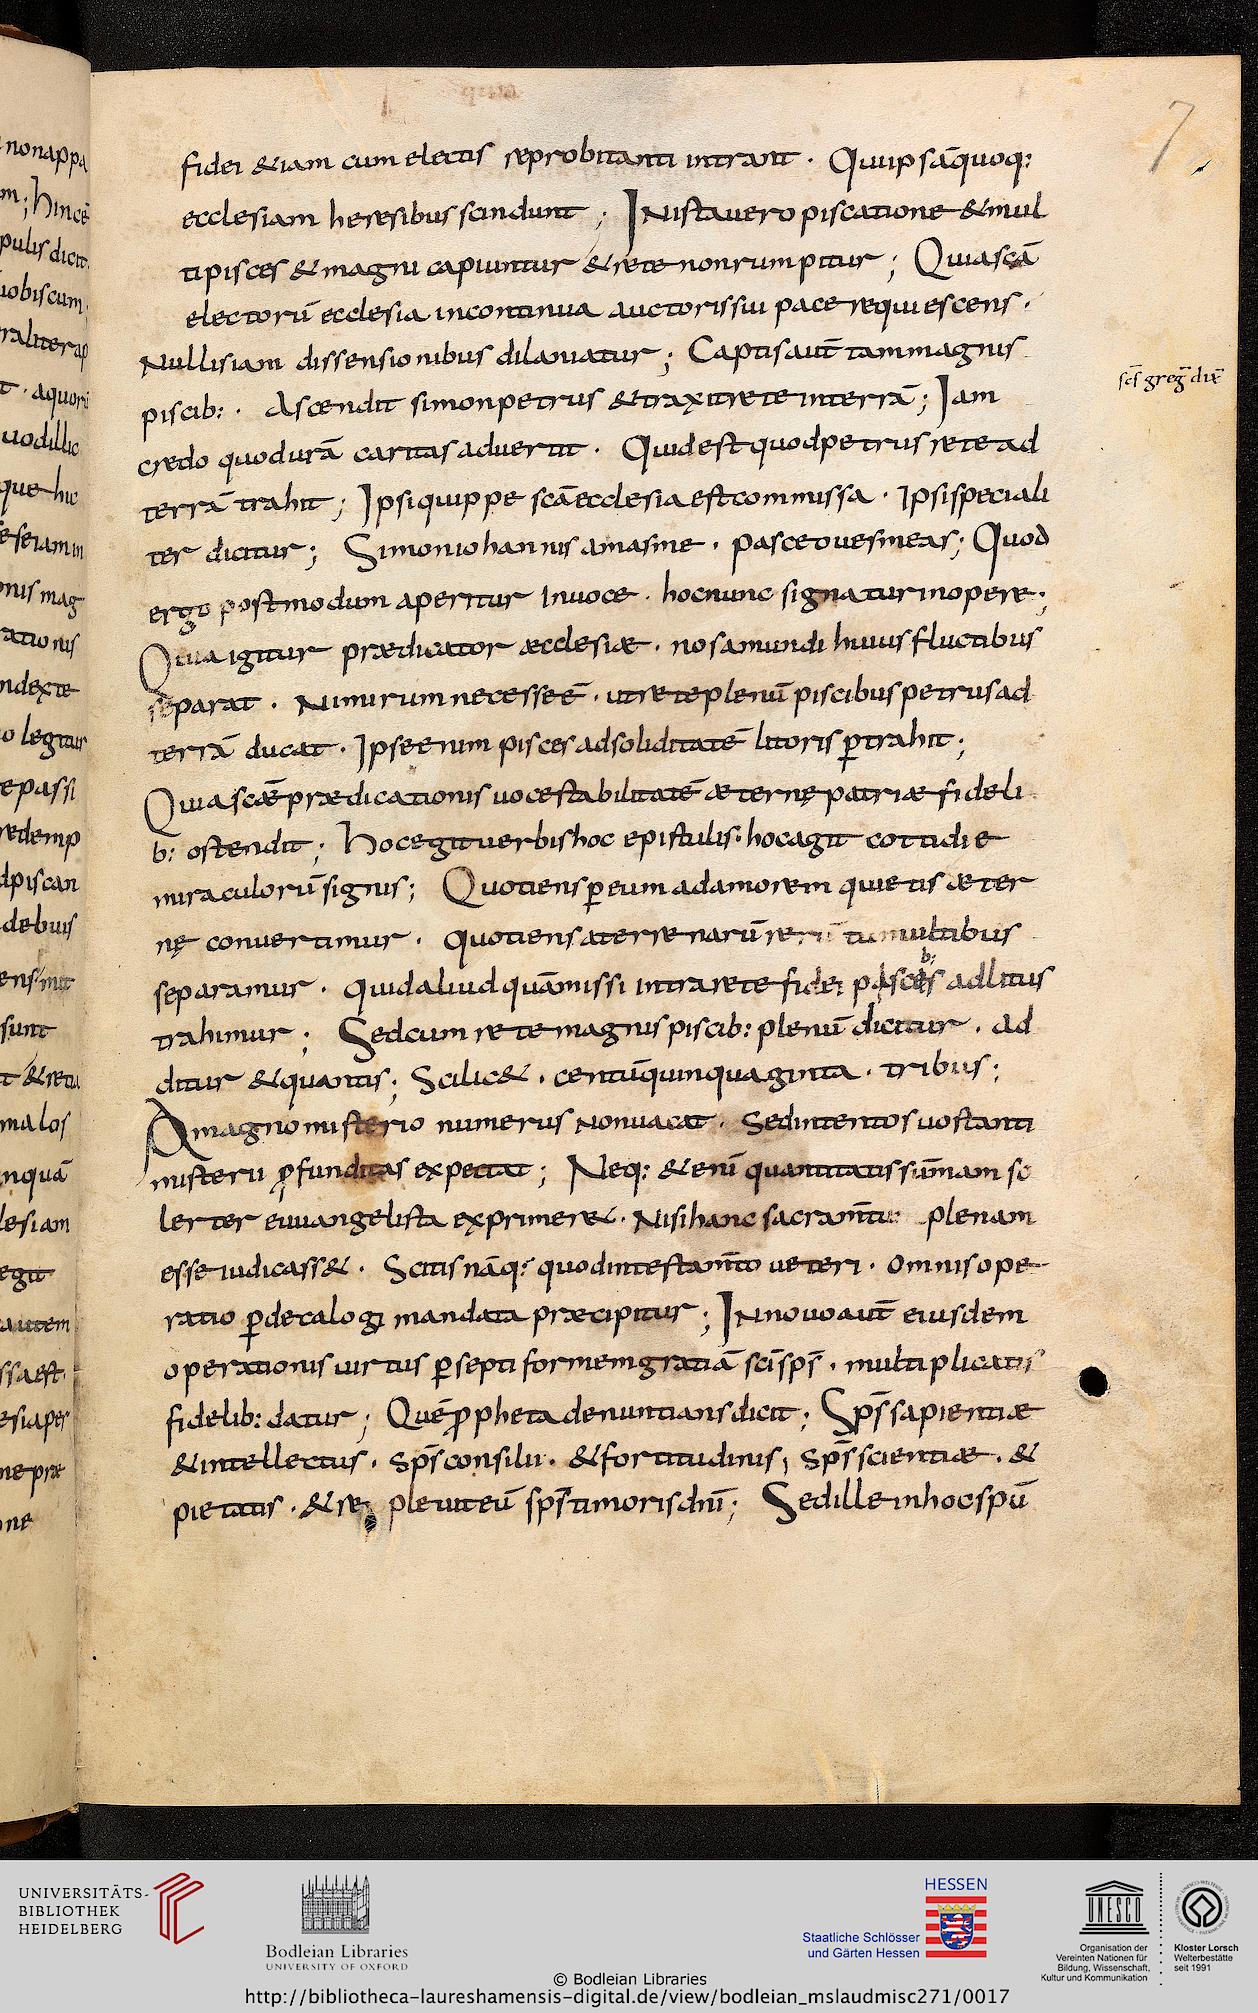 7
fidei &iam cum electis reprobi tanti intrant · Qui ipsāquoq:
ecclesiam heresibus scindunt ; INista uero piscatione &mul
ti pisces & magni capiuntur & rete non rumpitur ; Quia scā
electorū ecclesia in continua auctoris sui pace requiescens ·
Nullis iam dissensionibus dilaniatur ; Captis aut̄ tam magnis
piscib: · Ascendit simon petrus & traxit rete in terrā ; Iam
credo quod urā caritas aduertit · Quid est quod petrus rete ad
terrā trahit ; Ipsi quippe scā ecclesia est commissa · Ipsi speciali
ter dicitur ; Simon iohannis amas me · pasce oues meas ; Quod
ergo postmodum aperitur In uoce · hoc nunc signatur in opere ;
Quia igitur prædicator æcclesiæ · nos a mundi huius fluctibus
separat · Nimirum necesse ē · ut rete plenū piscibus petrus ad
terrā ducat · Ipse enim pisces ad soliditatē litoris ꝑtrahit ;
Quia scǣ prædicationis uoce stabilitatē æternę patriæ fideli
b: ostendit ; Hoc egit uerbis hoc epistulis · hoc agit cottidie
miraculorū signis ; Quotiens ꝑ eum ad amorem quietis æter
nę conuertimur · quotiens a terrenarū rerū tumultibus
separamur · quid aliud quā missi intra rete fidei pisces ad litus
b:
trahimur ; Sed cum rete magnis piscib: plenū dicitur · ad
ditur & quantis ; Scilic& · centū quinquaginta · tribus ;
A magno misterio numerus non uacat · sed intentos uos tanti
misterii ꝓfunditas expectat ; Neq: & enī quantitatis sūmam so
lerter euuangelista exprimer& · Nisi hanc sacram̄ti plenam
esse iudicass& · Scitis nāq: quod in testam̄to ueteri · omnis ope
ratio ꝑ decalogi mandata præcipitur ; IN nouo aut̄ eiusdem
operationis uirtus ꝑ septiformem gratiā scī sp̄s · multiplicatis
fidelib: datur ; Quē ꝓpheta denuntians dicit ; Sp̄s sapientiæ
& intellectus · sp̄s consilii · & fortitudinis ; sp̄s scientiæ · &
pietatis · & re pleuit eū sp̄s timoris dn̄i ; Sed ille in hoc spū
scs̄ greḡ dix̄
UNIVERSITÄTS-
BIBLIOTHEK
HEIDELBERG
Bodleian Libraries
UNIVERSITY OF OXFORD
HESSEN
Staatliche Schlösser
und Gärten Hessen
UNESCO
Organisation der
Vereinten Nationen für
Bildung, Wissenschaft,
Kultur und Kommunikation
Kloster Lorsch
Welterbestätte
seit 1991
© Bodleian Libraries
http://bibliotheca-laureshamensis-digital.de/view/bodleian_mslaudmisc271/0017